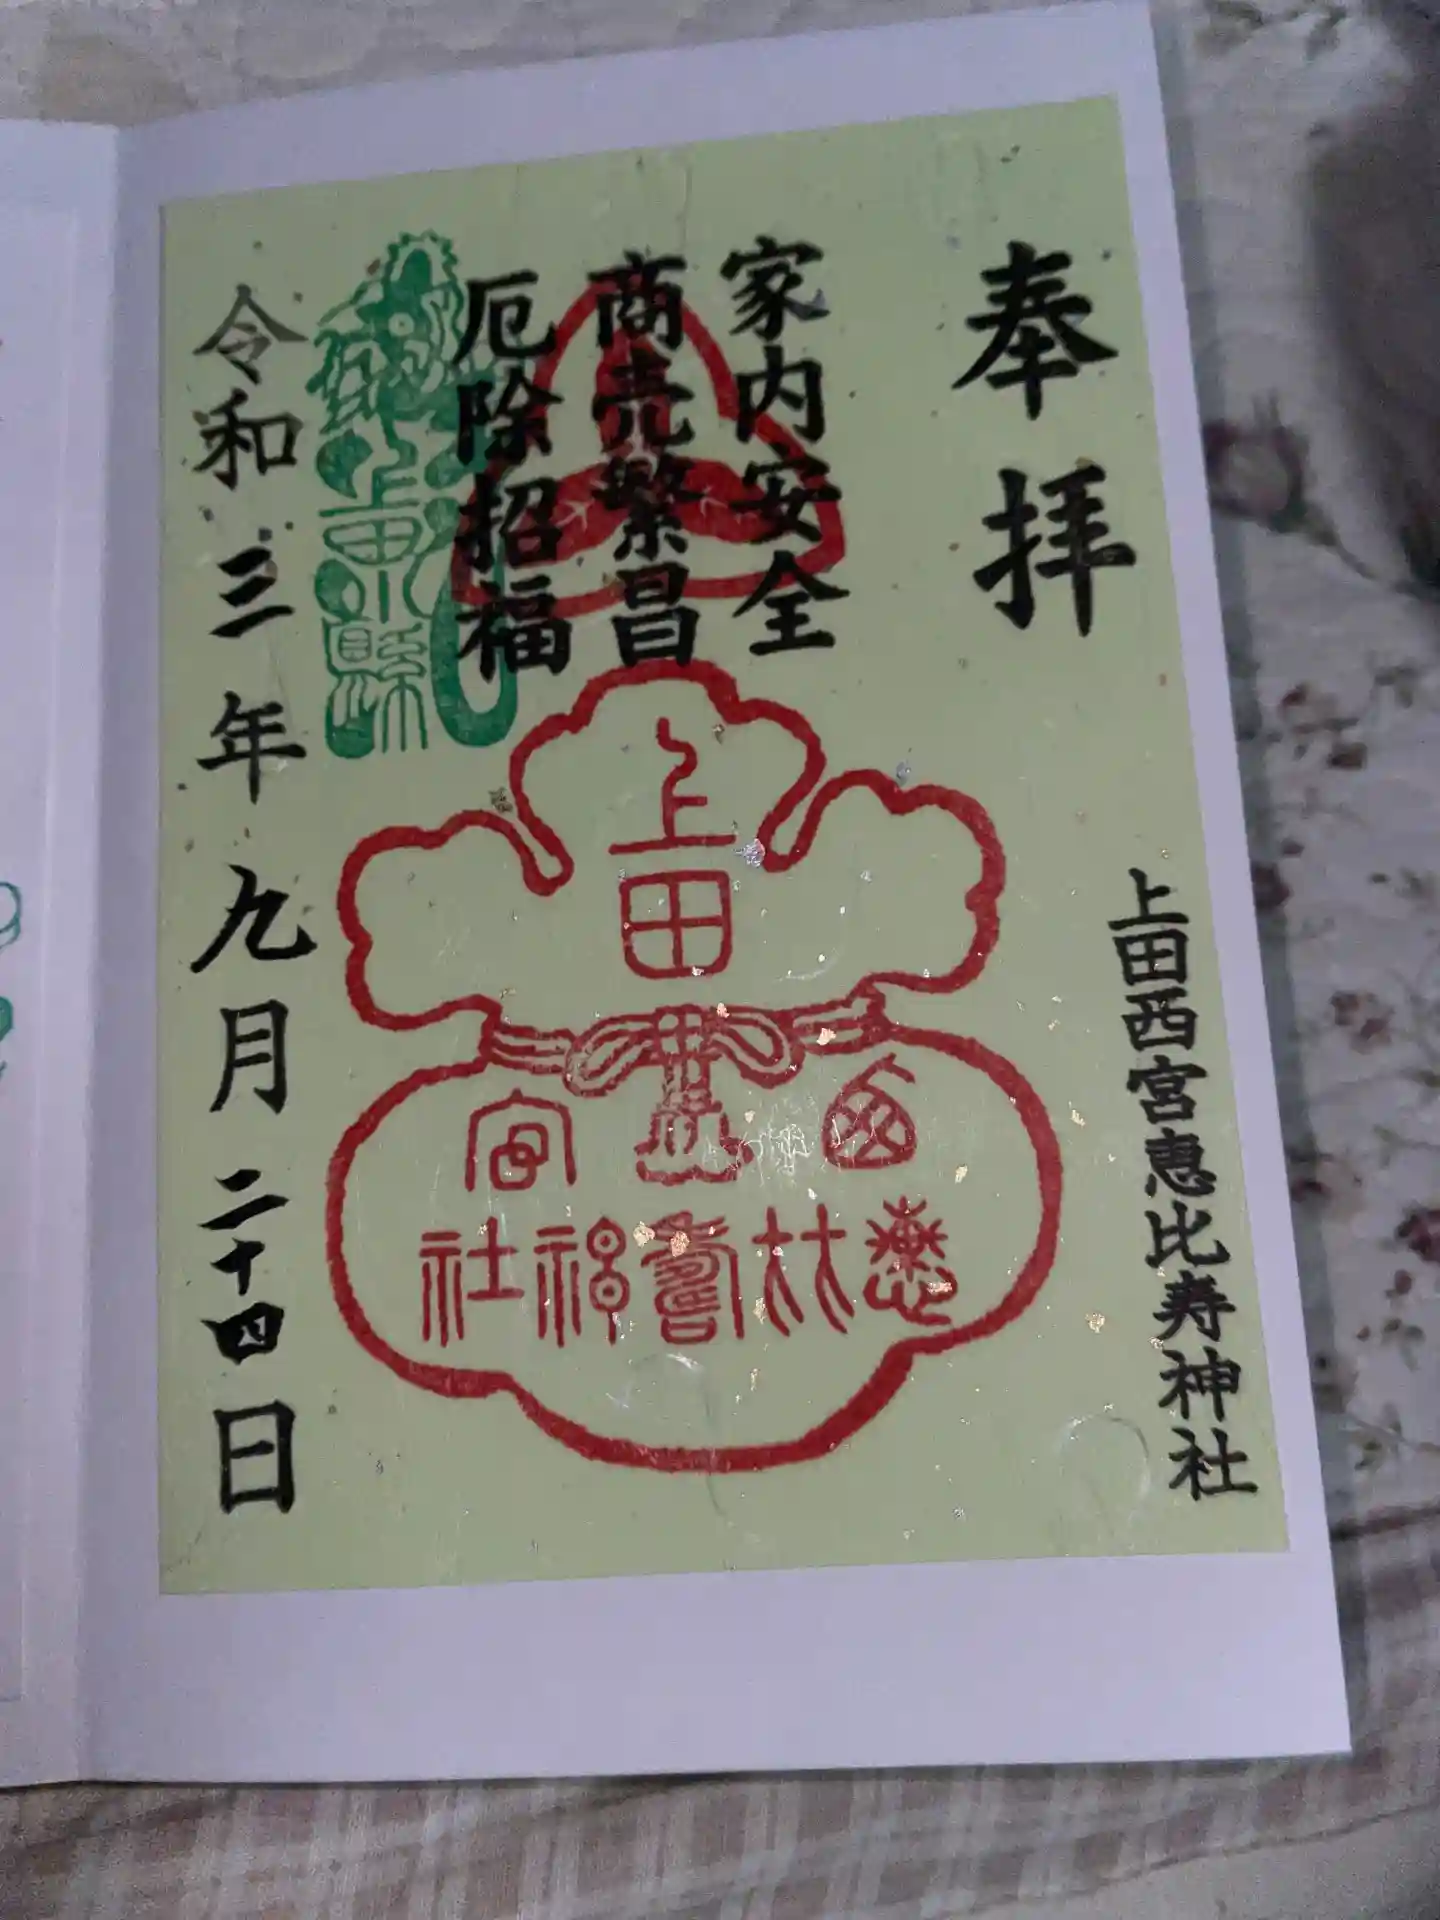 奉拝
上田西宮恵比寿神社
家内安全
商売繁昌
厄除招福
上田
西宮
恵比寿神社
上田
縣
令和三年九月二十四日